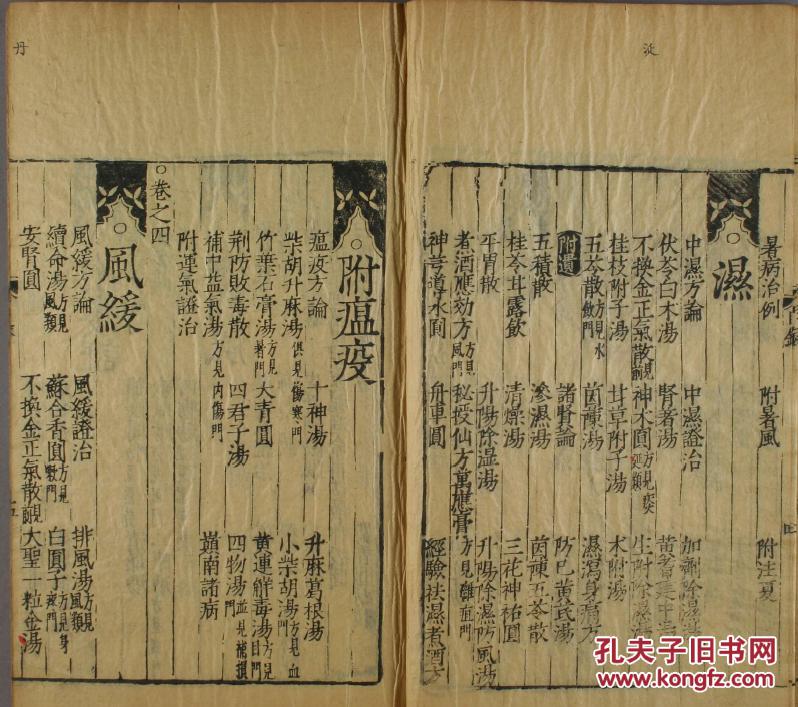 辿
丹
暑病治例 附暑風 附注夏
濕
中濕方論 中濕證治 加劑除濕
伏苓白木湯 腎著湯 黄耆建中
不換金正氣散見前 神木圓方見痰飲類 生附除濕湯
桂枝附子湯 甘草附子湯 木附湯
五苓散方見水飲門 茵蔯湯 濕瀉身痛方
附遺 諸腎論 防巳黄芪湯
五積散 滲濕湯 茵蔯五苓散
桂苓甘露飲 清燥湯 三花神祐圓
平胃散 升陽除湿湯 升陽除濕防风湯
煮酒應効方方見風門 秘授仙方萬應膏方見離疽門
神芎導水圓 舟車圓 經驗祛濕煮酒方
附瘟疫
瘟疫方論 十神湯 升麻葛根湯
柴胡升麻湯俱見傷寒門 小柴胡湯方見血門
竹葉石膏湯方見暑門 大青圓 黄連觧毒湯方見目門
荆防敗毒散 四君子湯 四物湯並見補損門
補中益氣湯方見内傷門 嶺南諸病
附運氣證治
卷之四
風緩
風緩方論 風緩證治 排風湯方見風類
續命湯方見風類 蘇合香圓方見氣門 白圓子方見身疼門
安腎圓 不換金正氣散見前 大聖一粒金湯
孔夫子旧书网
www.kongfz.com